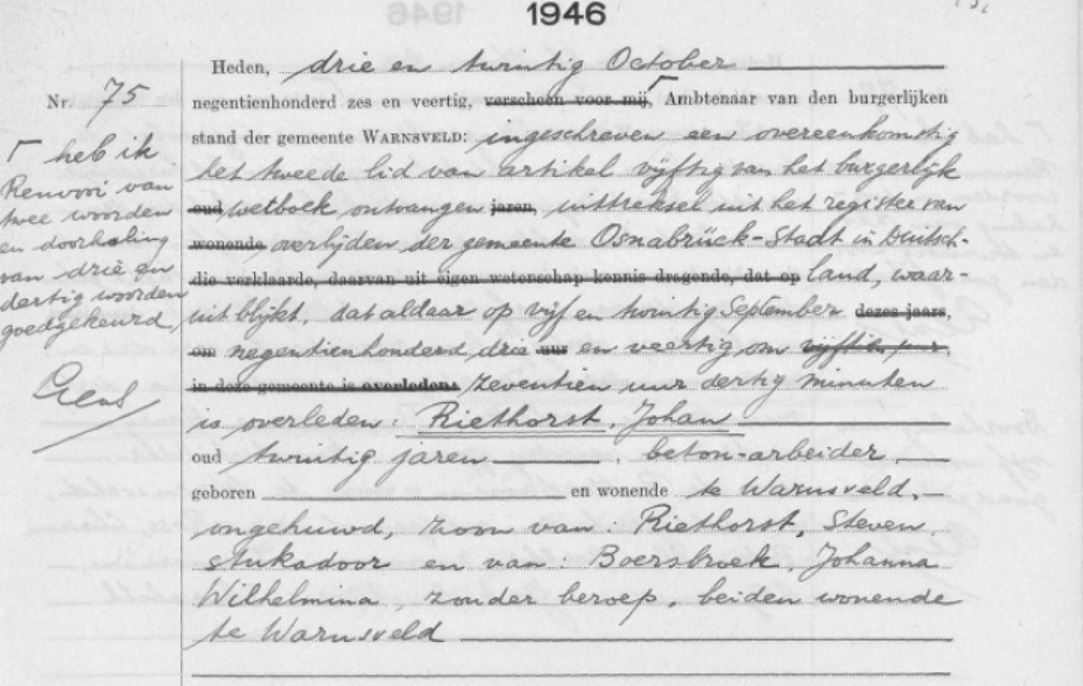 1946
Heden, drie en twintig October
Nr. 75
negentienhonderd zes en veertig, verscheen voor mij, Ambtenaar van den burgerlijken
stand der gemeente WARNSVELD: ingeschreven een overeenkomstig
het tweede lid van artikel vijftig van het burgerlijk
oud wetboek ontvangen jaren, uittreksel uit het register van
wonende overlijden der gemeente Osnabrück-Stadt in Duitsch-
die verklaarde, daarvan uit eigen wetenschap kennis dragende, dat op land, waar-
uit blijkt, dat aldaar op vijf en twintig September dezes jaars,
om negentienhonderd drie uur en veertig om
in deze gemeente is overleden: zeventien uur dertig minuten
is overleden: Riethorst, Johan
oud twintig jaren, beton-arbeider,
geboren en wonende te Warnsveld,
ongehuwd, zoon van: Riethorst, Steven
stukadoor en van: Boersbroek, Johanna
Wilhelmina, zonder beroep, beiden wonende
te Warnsveld
Γ heb ik
Renvooi van
twee woorden
en doorhaling
van drie en
dertig woorden
goedgekeurd